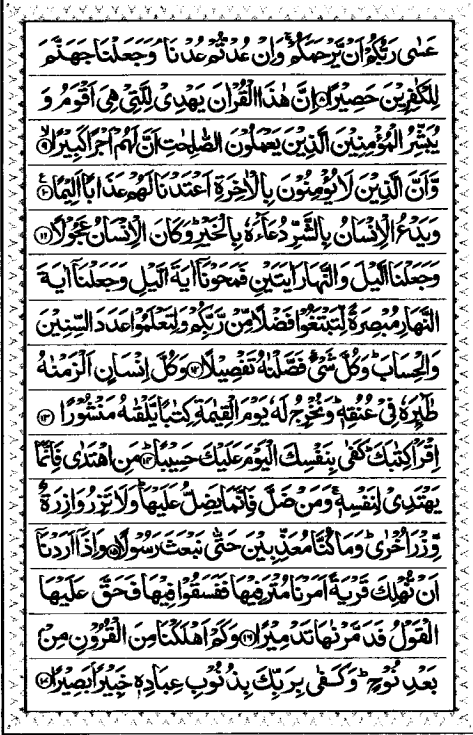 عَسٰى رَبُّكُمْ اَنْ يَّرْحَمَكُمْ ۚ وَاِنْ عُدْتُّمْ عُدْنَا ۘ وَجَعَلْنَا جَهَنَّمَ
لِلْكٰفِرِيْنَ حَصِيْرًا ۝۸ اِنَّ هٰذَا الْقُرْاٰنَ يَهْدِىْ لِلَّتِىْ هِىَ اَقْوَمُ وَ
يُبَشِّرُ الْمُؤْمِنِيْنَ الَّذِيْنَ يَعْمَلُوْنَ الصّٰلِحٰتِ اَنَّ لَهُمْ اَجْرًا كَبِيْرًا ۝۹
وَّاَنَّ الَّذِيْنَ لَا يُؤْمِنُوْنَ بِالْاٰخِرَةِ اَعْتَدْنَا لَهُمْ عَذَابًا اَلِيْمًا ۝۱۰
وَيَدْعُ الْاِنْسَانُ بِالشَّرِّ دُعَآءَهٗ بِالْخَيْرِ ؕ وَكَانَ الْاِنْسَانُ عَجُوْلًا ۝۱۱
وَجَعَلْنَا الَّيْلَ وَالنَّهَارَ اٰيَتَيْنِ فَمَحَوْنَاۤ اٰيَةَ الَّيْلِ وَجَعَلْنَاۤ اٰيَةَ
النَّهَارِ مُبْصِرَةً لِّتَبْتَغُوْا فَضْلًا مِّنْ رَّبِّكُمْ وَلِتَعْلَمُوْا عَدَدَ السِّنِيْنَ
وَالْحِسَابَ ؕ وَكُلَّ شَىْءٍ فَصَّلْنٰهُ تَفْصِيْلًا ۝۱۲ وَكُلَّ اِنْسَانٍ اَلْزَمْنٰهُ
طٰٓئِرَهٗ فِىْ عُنُقِهٖ ؕ وَنُخْرِجُ لَهٗ يَوْمَ الْقِيٰمَةِ كِتٰبًا يَّلْقٰىهُ مَنْشُوْرًا ۝۱۳
اِقْرَاْ كِتٰبَكَ ؕ كَفٰى بِنَفْسِكَ الْيَوْمَ عَلَيْكَ حَسِيْبًا ؕ ۝۱۴ مَنِ اهْتَدٰى فَاِنَّمَا
يَهْتَدِىْ لِنَفْسِهٖ ۚ وَمَنْ ضَلَّ فَاِنَّمَا يَضِلُّ عَلَيْهَا ؕ وَلَا تَزِرُ وَازِرَةٌ
وِّزْرَ اُخْرٰى ؕ وَمَا كُنَّا مُعَذِّبِيْنَ حَتّٰى نَبْعَثَ رَسُوْلًا ۝۱۵ وَاِذَاۤ اَرَدْنَاۤ
اَنْ نُّهْلِكَ قَرْيَةً اَمَرْنَا مُتْرَفِيْهَا فَفَسَقُوْا فِيْهَا فَحَقَّ عَلَيْهَا
الْقَوْلُ فَدَمَّرْنٰهَا تَدْمِيْرًا ۝۱۶ وَكَمْ اَهْلَكْنَا مِنَ الْقُرُوْنِ مِنْۢ
بَعْدِ نُوْحٍ ؕ وَكَفٰى بِرَبِّكَ بِذُنُوْبِ عِبَادِهٖ خَبِيْرًۢا بَصِيْرًا ۝۱۷